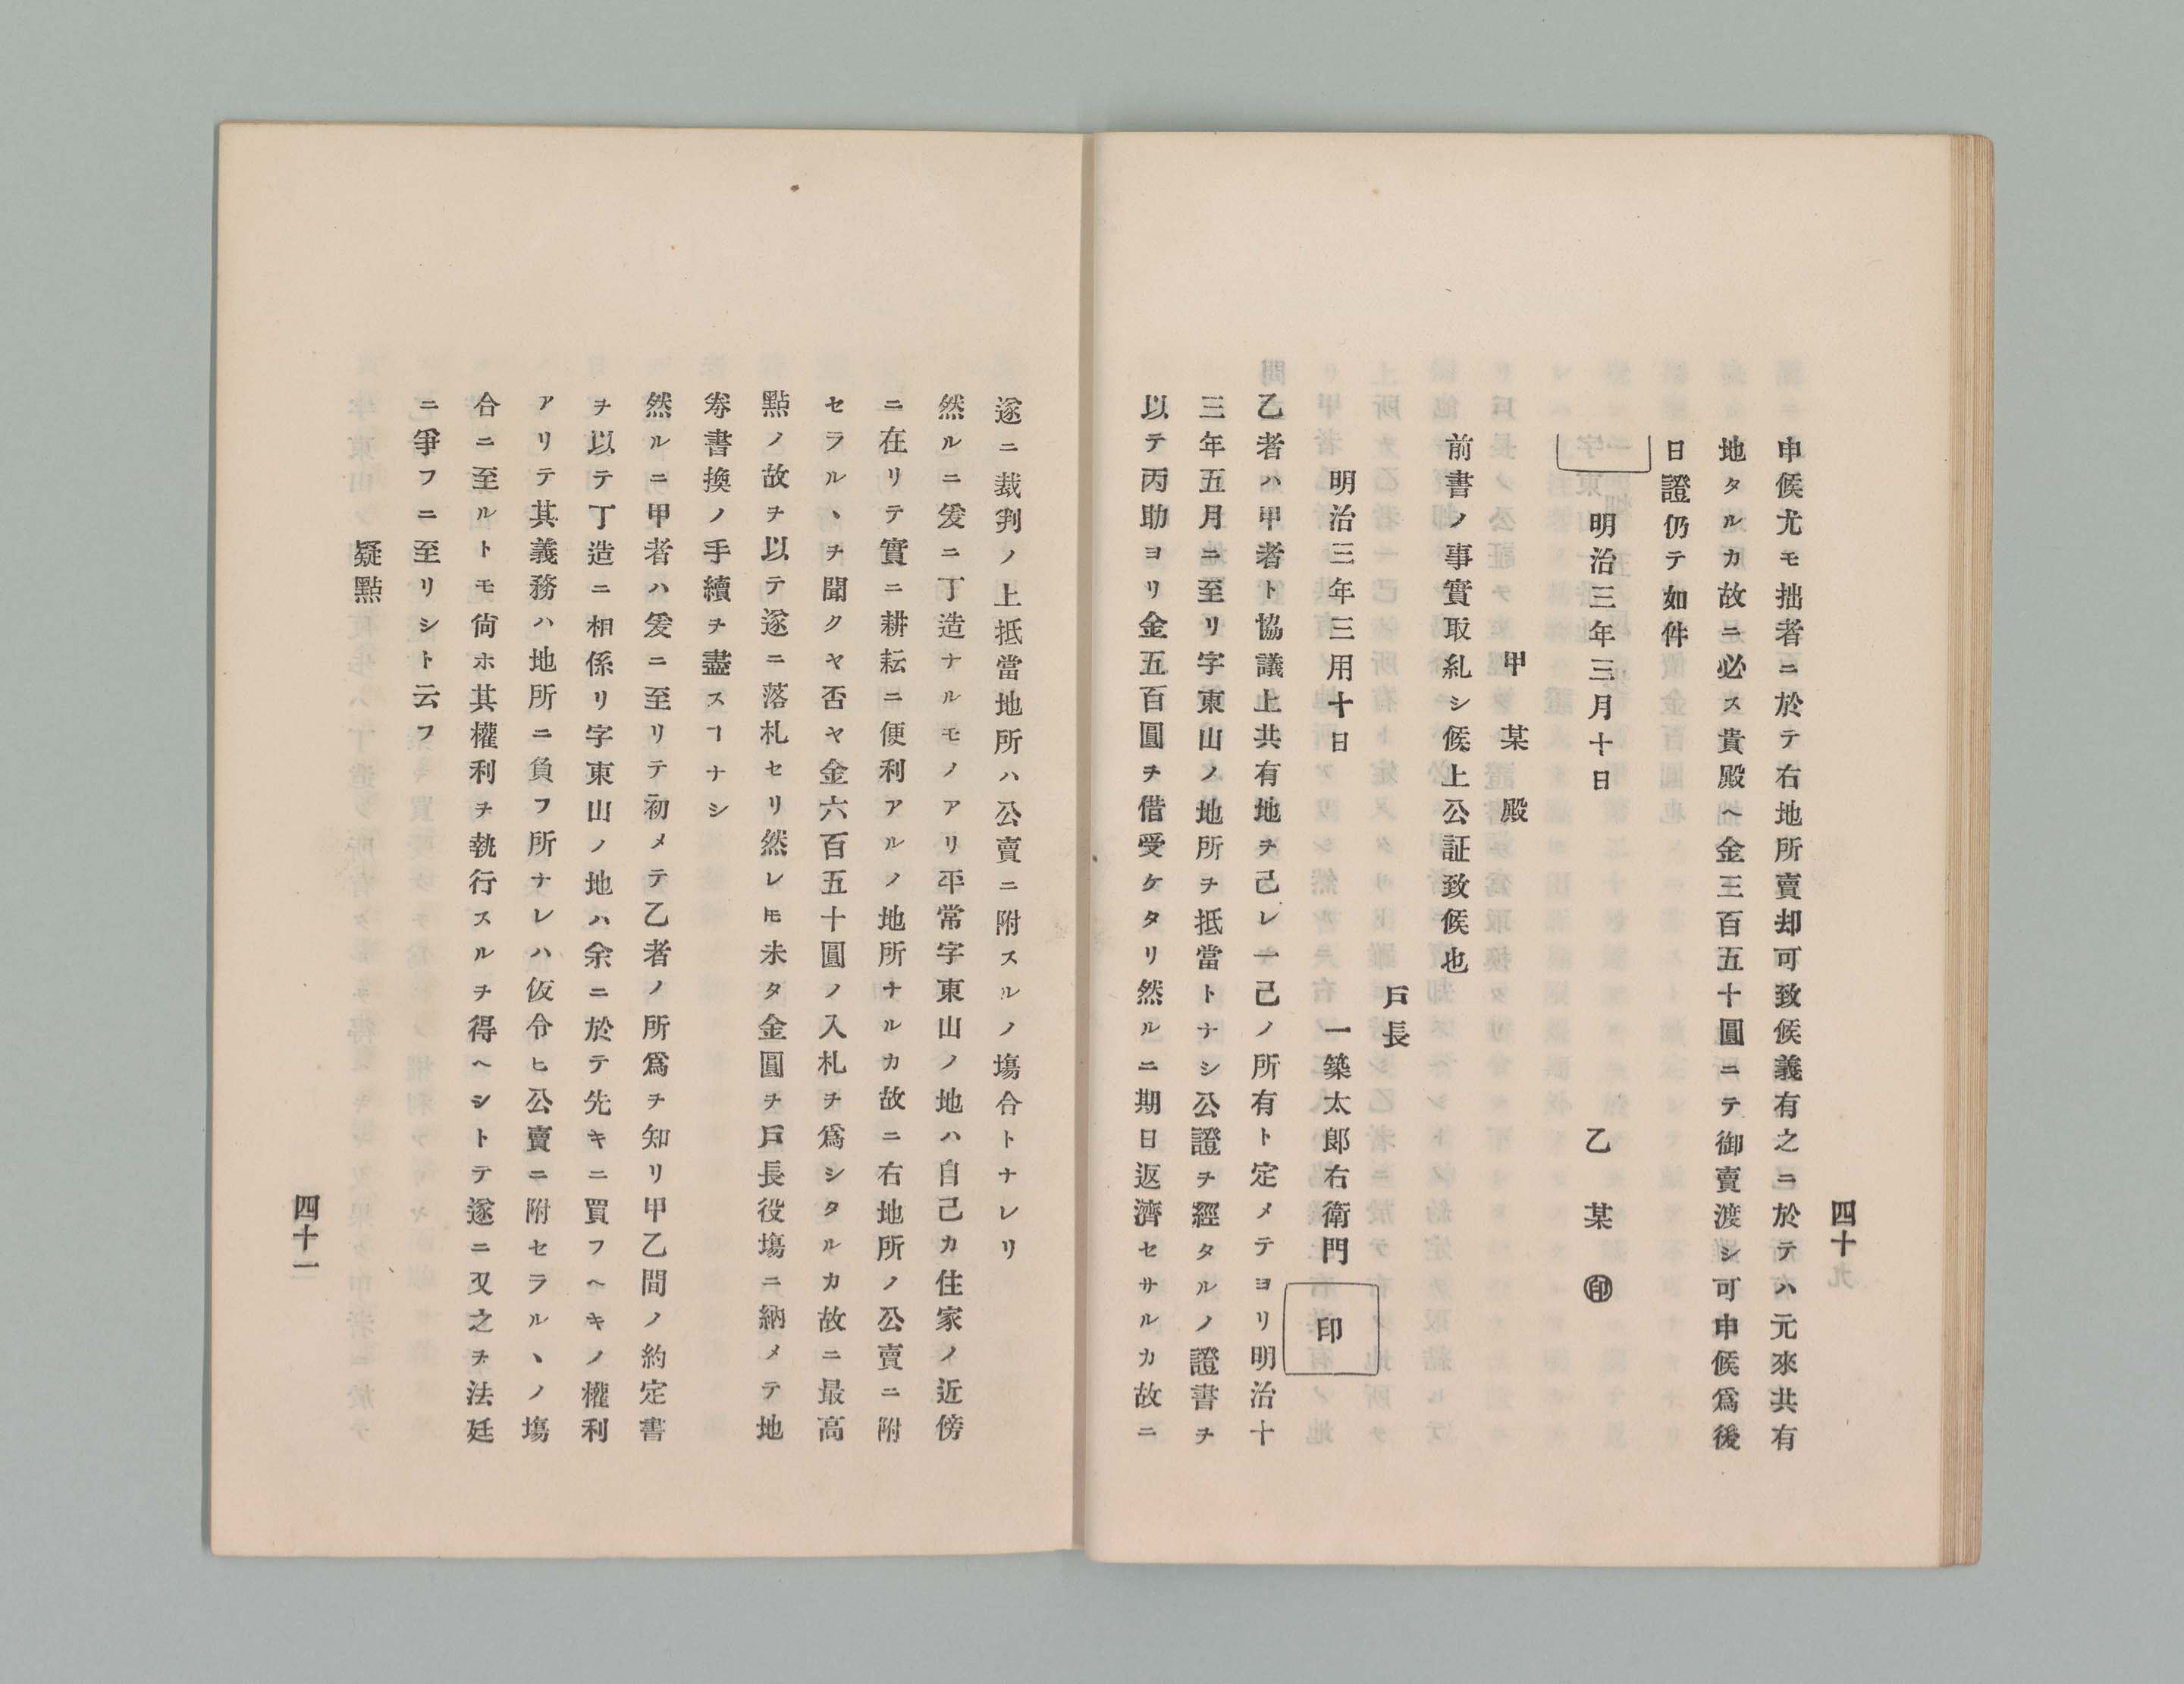 四十
申候尤モ拙者ニ於テ右地所賣却可致候義有之ニ於テハ元來共有
地タルカ故ニ必ス貴殿ヘ金三百五十圓ニテ御賣渡シ可申候爲後
日證仍テ如件
明治三年三月十日
乙某㊞
甲某殿
前書ノ事實取糺シ候上公証致候也
戸長
明治三年三用十日
一築太郎右衛門
印
乙者ハ甲者ト協議上共有地ヲ己レ一己ノ所有ト定メテヨリ明治十
三年五月ニ至リ字東山ノ地所ヲ抵當トナシ公證ヲ經タルノ證書ヲ
以テ丙助ヨリ金五百圓ヲ借受ケタリ然ルニ期日返濟セサルカ故ニ
遂ニ裁判ノ上抵當地所ハ公賣ニ附スルノ塲合トナレリ
然ルニ爰ニ丁造ナルモノアリ平常字東山ノ地ハ自己カ住家ノ近傍
ニ在リテ實ニ耕耘ニ便利アルノ地所ナルカ故ニ右地所ノ公賣ニ附
セラルヽヲ聞クヤ否ヤ金六百五十圓ノ入札ヲ爲シタルカ故ニ最高
點ノ故ヲ以テ遂ニ落札セリ然レ𪜈未タ金圓ヲ戸長役塲ニ納メテ地
劵書換ノ手續ヲ盡スヿナシ
然ルニ甲者ハ爰ニ至リテ初メテ乙者ノ所爲ヲ知リ甲乙間ノ約定書
ヲ以テ丁造ニ相係リ字東山ノ地ハ余ニ於テ先キニ買フヘキノ權利
アリテ其義務ハ地所ニ負フ所ナレハ仮令ヒ公賣ニ附セラルヽノ塲
合ニ至ルトモ尙ホ其權利ヲ執行スルヲ得ヘシトテ遂ニ又之ヲ法廷
ニ爭フニ至リシト云フ
疑點
四十一